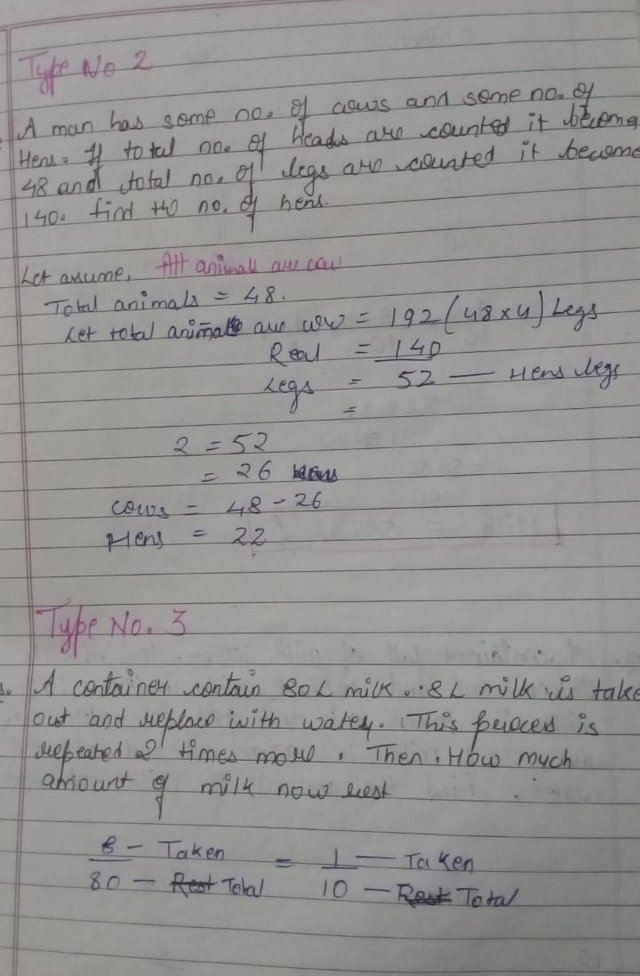 Type No 2
A man has some no. of cows and some no. of
Hens. If total no. of heads are counted it become
48 and total no. of legs are counted it become
140. find the no. of hens.
Let assume, All animall are cow
Total animals = 48.
Let total animals are cow = 192 (48x4) Legs
Real = 140
Legs = 52 — Hens legs
=
2 = 52
= 26
cows = 48 - 26
Hens = 22
Type No. 3
A container contain 80L milk. 8L milk is take
out and replace with water. This process is
repeated 2 times more. Then. How much
amount of milk now rest
8 - Taken = 1 — Taken
80 - Rest Total 10 - Rest Total